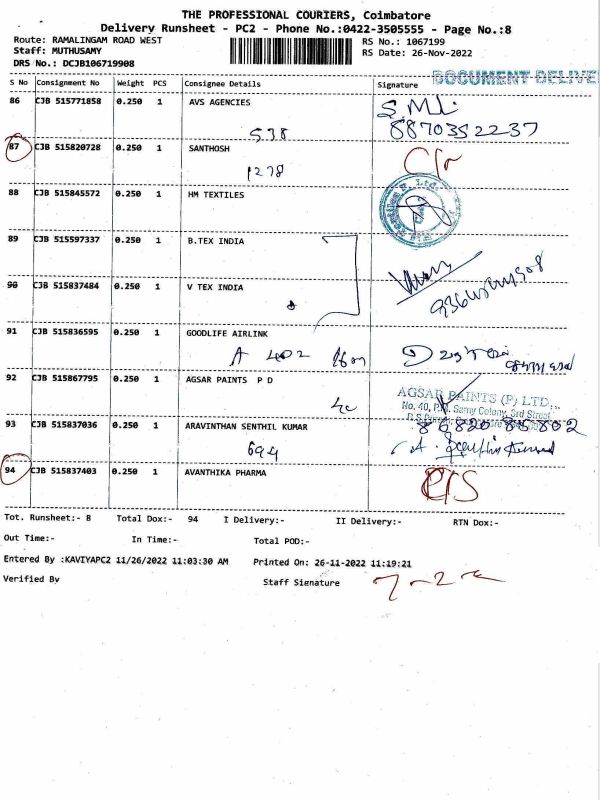 THE PROFESSIONAL COURIERS, Coimbatore
Delivery Runsheet - PC2 - Phone No.:0422-3505555 - Page No.:8
Route: RAMALINGAM ROAD WEST RS No.: 1067199
Staff: MUTHUSAMY RS Date: 26-Nov-2022
DRS No.: DCJB106719908
DOCUMENT DELIVE
S No Consignment No Weight PCS Consignee Details Signature
86 CJB 515771858 0.250 1 AVS AGENCIES
538 8870352237
87 CJB 515820728 0.250 1 SANTHOSH
1278
88 CJB 515845572 0.250 1 HM TEXTILES
89 CJB 515597337 0.250 1 B.TEX INDIA
90 CJB 515837484 0.250 1 V TEX INDIA
91 CJB 515836595 1 GOODLIFE AIRLINK
0.250
A 402
92 CJB 515867795 0.250 1 AGSAR PAINTS P D
AGSAR PAINTS (P) LTD.
No. 40, Samy Colony, 3rd Street
93 CJB 515837036 0.250 1 ARAVINTHAN SENTHIL KUMAR
694
94 CJB 515837403 0.250 1 AVANTHIKA PHARMA
Tot. Runsheet:- 8 Total Dox:- 94 I Delivery:- II Delivery:- RTN Dox:-
Out Time:- In Time:- Total POD:-
Entered By :KAVIYAPC2 11/26/2022 11:03:30 AM Printed On: 26-11-2022 11:19:21
Verified By Staff Signature